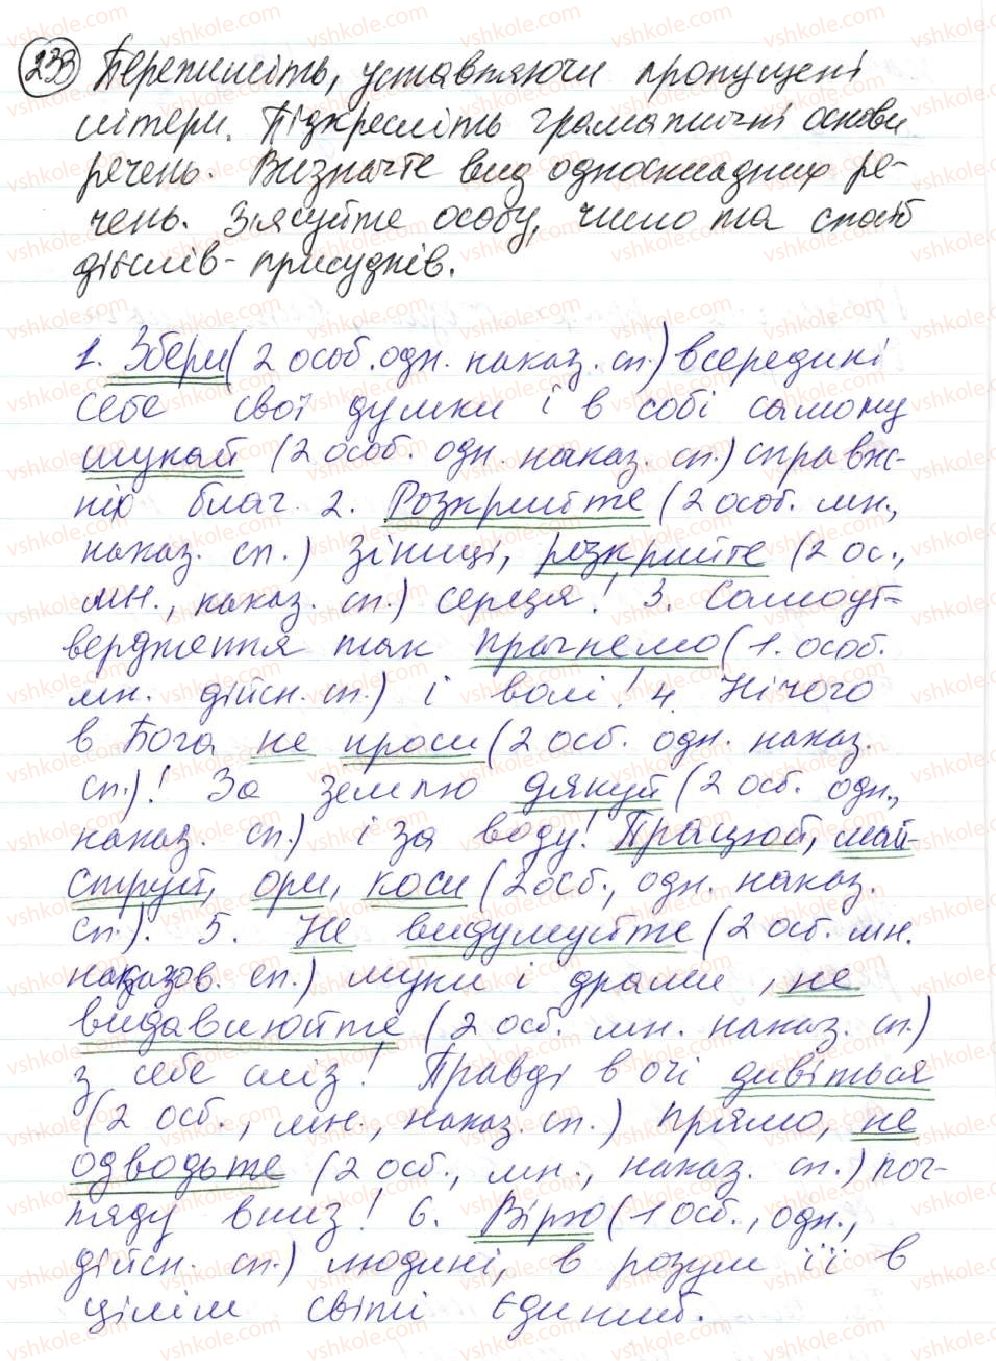 233 Перепишіть, уставляючи пропущені
літери. Підкресліть граматичні основи
речень. Визначте вид односкладних ре-
чень. З'ясуйте особу, число та спосіб
дієслів-присудків.
1. Збери (2 особ. одн. наказ. сп.) всередині
себе свої думки і в собі самому
шукай (2 особ. одн. наказ. сп.) справж-
ніх благ. 2. Розкрийте (2 особ. мн.,
наказ. сп.) зіниці, розкрийте (2 ос.,
мн., наказ. сп.) серця! 3. Самоут-
вердження так прагнемо (1. особ.
мн. дійсн. сп.) і волі! 4. Нічого
в Бога не проси (2 осб. одн. наказ.
сп.)! За землю дякуй (2 осб. одн.,
наказ. сп.) і за воду! Працюй, май-
струй, ори, коси (2 осб., одн. наказ.
сп.). 5. Не видумуйте (2 осб. мн.
наказов. сп.) муки і драми, не
видавлюйте (2 осб. мн. наказ. сп.)
з себе сліз! Правді в очі дивіться
(2 осб., мн., наказ. сп.) прямо, не
одводьте (2 осб., мн., наказ. сп.) пог-
ляду вниз! 6. Вірю (1 осб., одн.,
дійсн. сп.) людині, в розум її в
цілім світі єдиний.